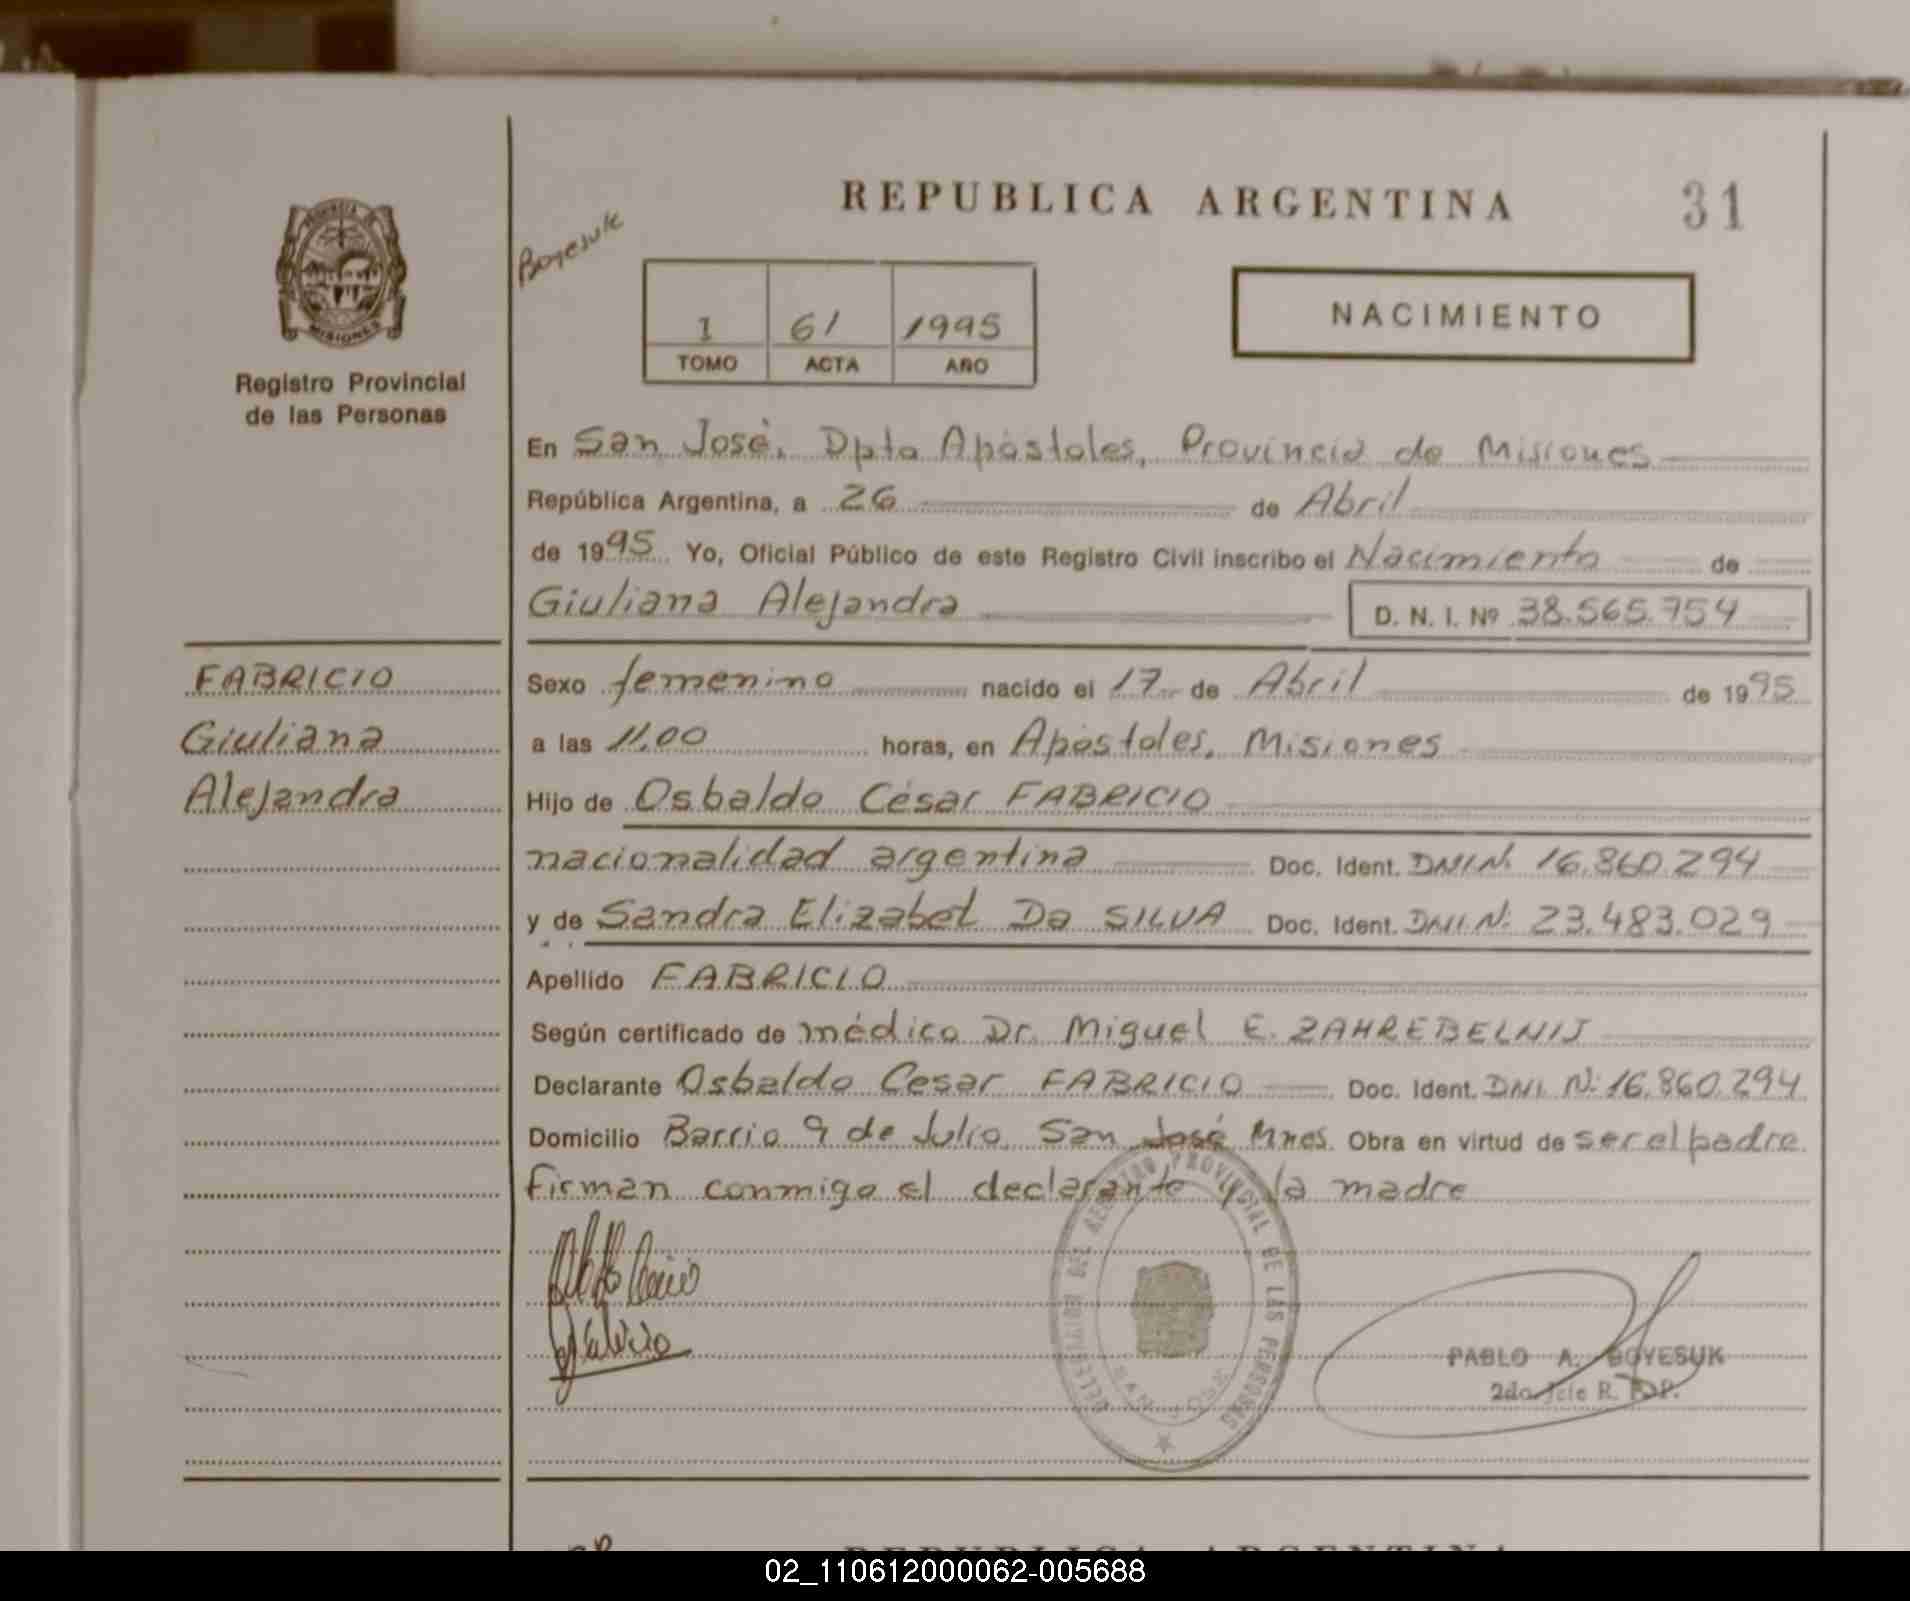 REPUBLICA ARGENTINA
31
PROVINCIA DE
MISIONES
Registro Provincial
de las Personas
Boyesuk
I 61 1995
TOMO ACTA AÑO
NACIMIENTO
En San José, Dpto Apóstoles, Provincia de Misiones
República Argentina, a 26 de Abril
de 1995 Yo, Oficial Público de este Registro Civil inscribo el Nacimiento de
Giuliana Alejandra D. N. I. Nº 38.565.754
FABRICIO
Giuliana
Alejandra
Sexo femenino nacido el 17 de Abril de 1995
a las 11.00 horas, en Apóstoles, Misiones
Hijo de Osbaldo César FABRICIO
nacionalidad argentina Doc. Ident. DNI N. 16.860.294
y de Sandra Elizabet Da SILVA Doc. Ident. DNI N: 23.483.029
Apellido FABRICIO
Según certificado de médico Dr. Miguel E. ZAHREBELNIJ
Declarante Osbaldo Cesar FABRICIO Doc. Ident. DNI. N: 16.860.294
Domicilio Barrio 9 de Julio San José Mnes. Obra en virtud de ser el padre.
firman conmigo el declarante y la madre
DELEGACION DEL REGISTRO PROVINCIAL DE LAS PERSONAS
SAN JOSE
PABLO A. BOYESUK
2do Jefe R. P. P.
REPUBLICA ARGENTINA
02_110612000062-005688